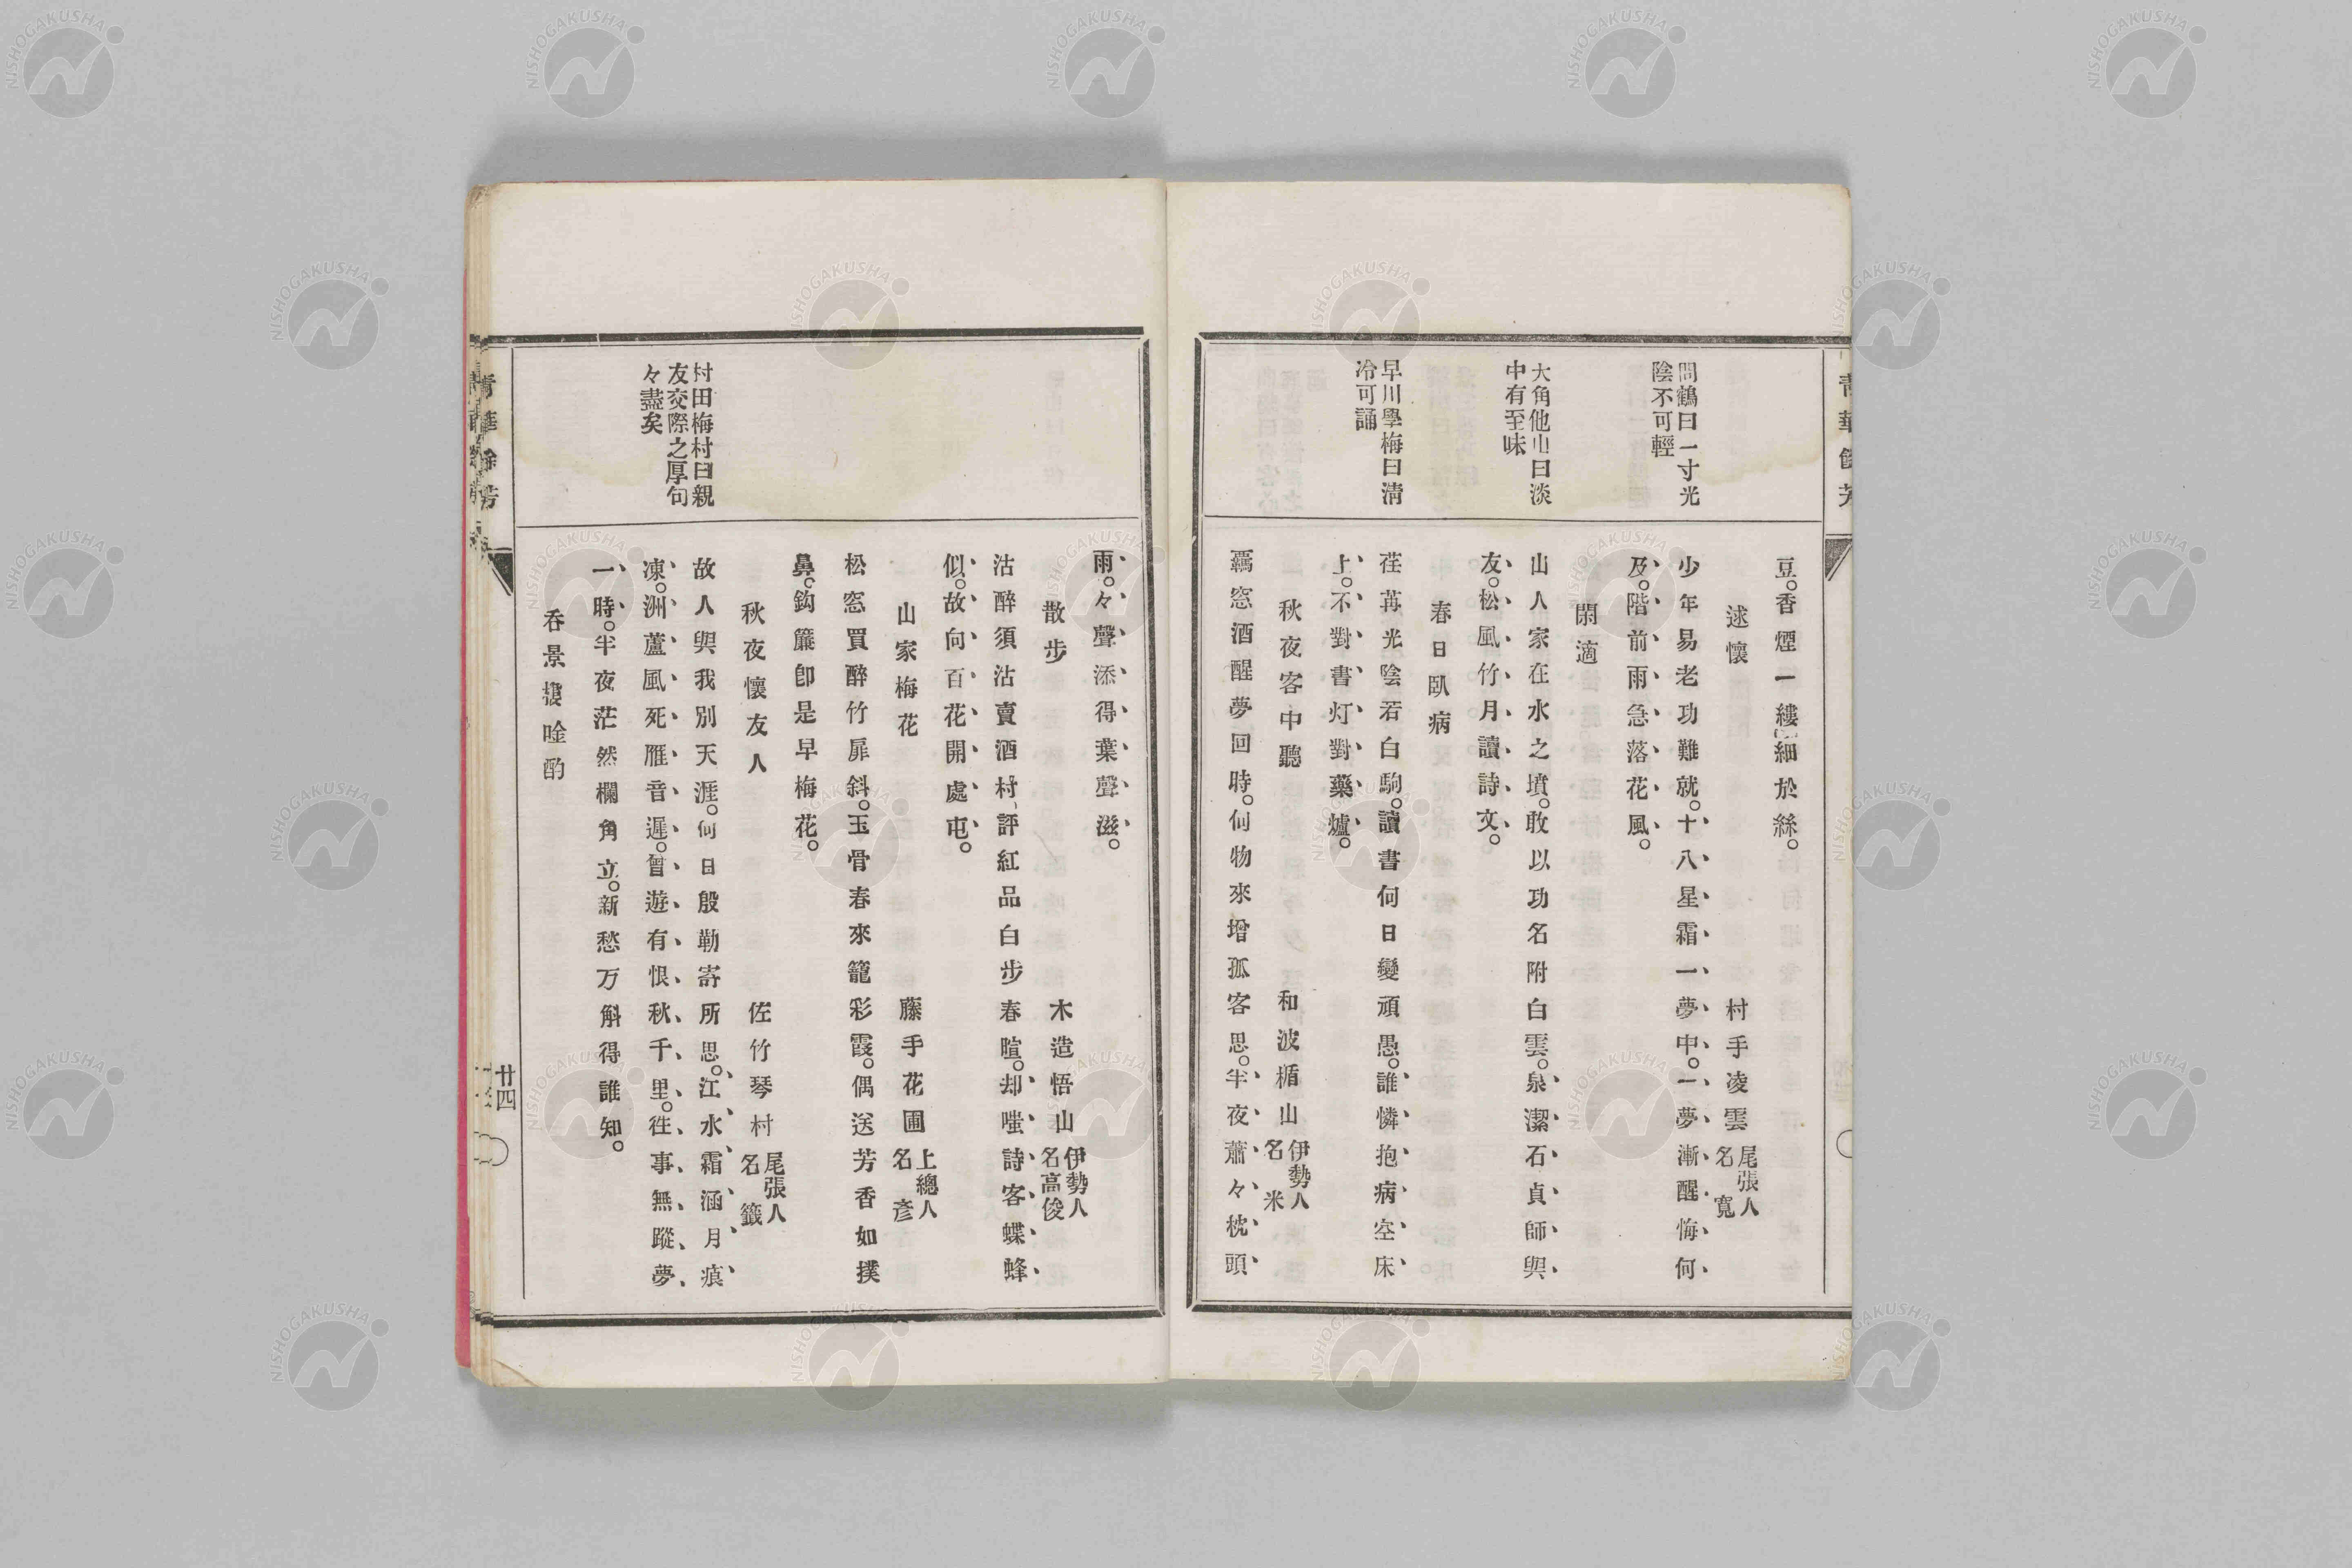 問鶴曰一寸光
陰不可輕
大角他山曰淡
中有至味
早川學梅曰淸
冷可誦
豆。香煙一縷細於絲。
逑懷 村手凌雲 尾張人 名寬
少年易老功難就。十八星霜一夢中。一夢漸醒悔何
及。階前雨急落花風。
閑適
山人家在水之墳。敢以功名附白雲。泉潔石貞師與
友。松風竹月讀詩文。
春日臥病
荏苒光陰若白駒。讀書何日變頑愚。誰憐抱病空床
上。不對書灯對藥爐。
秋夜客中聽 和波楯山 伊勢人 名米
覊窓酒醒夢回時。何物來增孤客思。半夜蕭々枕頭
村田梅村曰親
友交際之厚句
々盡矣
雨。々聲添得葉聲滋。
散步 木造悟山 伊勢人 名高俊
沽醉須沽賣酒村、評紅品白步春暄。却嗤詩客蝶蜂
似。故向百花開處屯。
山家梅花 藤手花圃 上總人 名彥
松窓買醉竹扉斜。玉骨春來籠彩霞。偶送芳香如撲
鼻。鈎簾卽是早梅花。
秋夜懷友人 佐竹琴村 尾張人 名籤
故人與我別天涯。何日殷勒寄所思。江水霜涵月痕
凍。洲蘆風死雁音遲。曾遊有恨秋千里。徃事無蹤夢
一時。半夜茫然欄角立。新愁万斛得誰知。
呑景樓唫酌
靑華餘芳
廿四
NISHOGAKUSHA